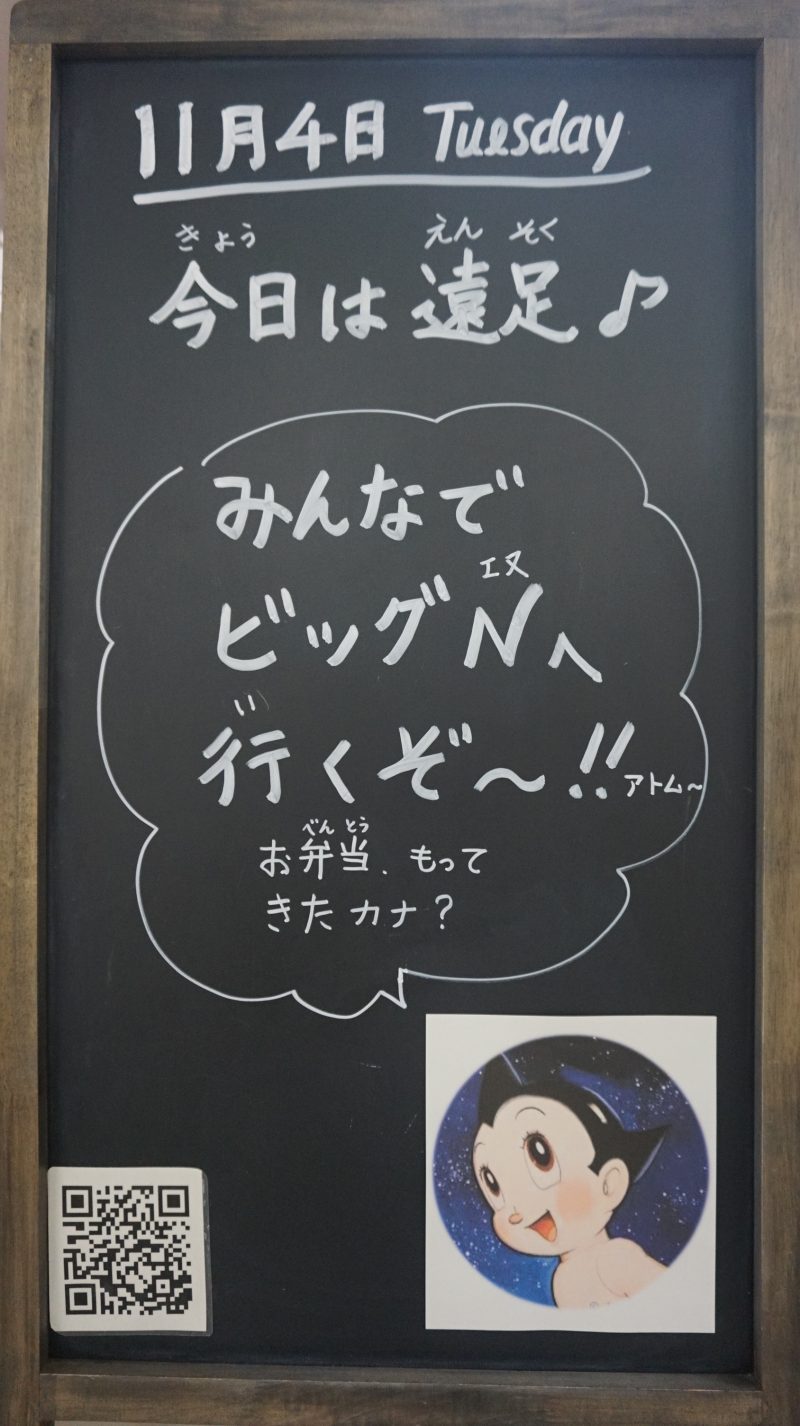 11月4日 Tuesday
きょう えん そく
今日は遠足♪
みんなで
エヌ
ビッグNへ
い
行くぞ〜!!アトム〜
べん とう
お弁当、もって
きたカナ?